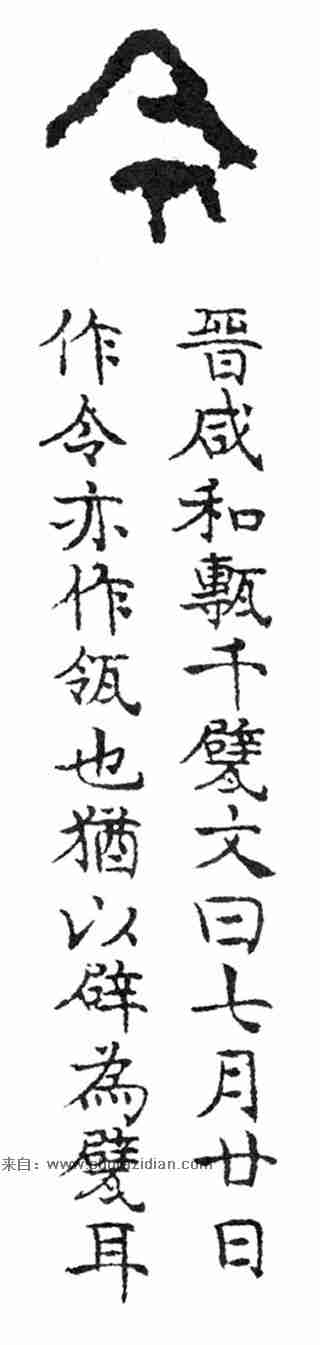 令
晉咸和甎千甓文曰七月廿日
作令亦作瓴也猶以辟為甓耳
来自：